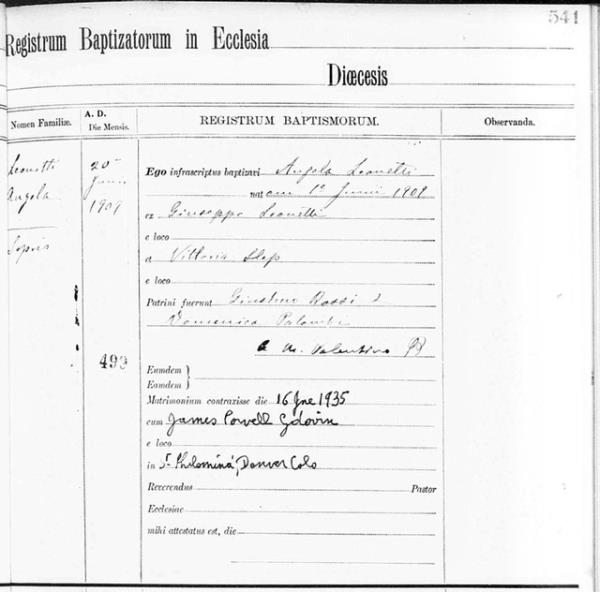 541
Registrum Baptizatorum in Ecclesia
Diœcesis
Nomen Familiæ.
A. D.
Die Mensis.
REGISTRUM BAPTISMORUM.
Observanda.
Leonetti
Angela
Sopris
20
Junii
1909
493
Ego infrascriptus baptizavi Angela Leonetti
nat am 1a Junii 1909
ex Giuseppe Leonetti
e loco
et Vittoria
e loco
Patrini fuerunt Giustino Rossi &
Domenica Palombi
Eumdem }
Eamdem }
Matrimonium contraxisse die 16 Jne 1935
cum James Powell Gdovin
e loco
in St. Philomina, Denver Colo
Reverendus Pastor
Ecclesiae
mihi attestatus est, die